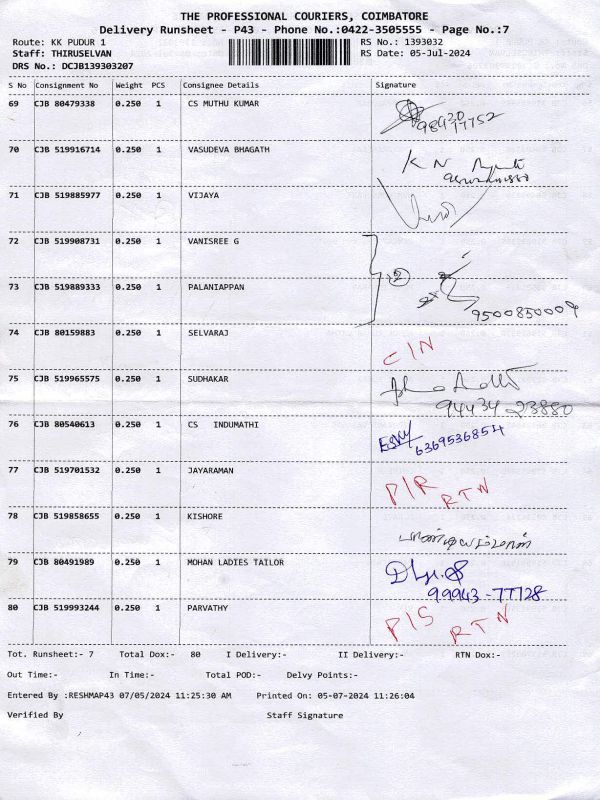 THE PROFESSIONAL COURIERS, COIMBATORE
Delivery Runsheet - P43 - Phone No.:0422-3505555 - Page No.:7
Route: KK PUDUR 1 RS No.: 1393032
Staff: THIRUSELVAN RS Date: 05-Jul-2024
DRS No.: DCJB139303207
S No Consignment No Weight PCS Consignee Details Signature
69 CJB 80479338 0.250 1 CS MUTHU KUMAR
70 CJB 519916714 0.250 1 VASUDEVA BHAGATH K N
71 CJB 519885977 0.250 1 VIJAYA
72 CJB 519908731 0.250 1 VANISREE G
2
73 CJB 519889333 0.250 1 PALANIAPPAN
9500850009
74 CJB 80159883 0.250 1 SELVARAJ C/N
75 CJB 519965575 0.250 1 SUDHAKAR
94434 23880
76 CJB 80540613 0.250 1 CS INDUMATHI
6369536854
77 CJB 519701532 0.250 1 JAYARAMAN P/R RTN
78 CJB 519858655 0.250 1 KISHORE
79 CJB 80491989 0.250 1 MOHAN LADIES TAILOR
99943-77128
80 CJB 519993244 0.250 1 PARVATHY P/S RTN
Tot. Runsheet:- 7 Total Dox:- 80 I Delivery:- II Delivery:- RTN Dox:-
Out Time:- In Time:- Total POD:- Delvy Points:-
Entered By :RESHMAP43 07/05/2024 11:25:30 AM Printed On: 05-07-2024 11:26:04
Verified By Staff Signature